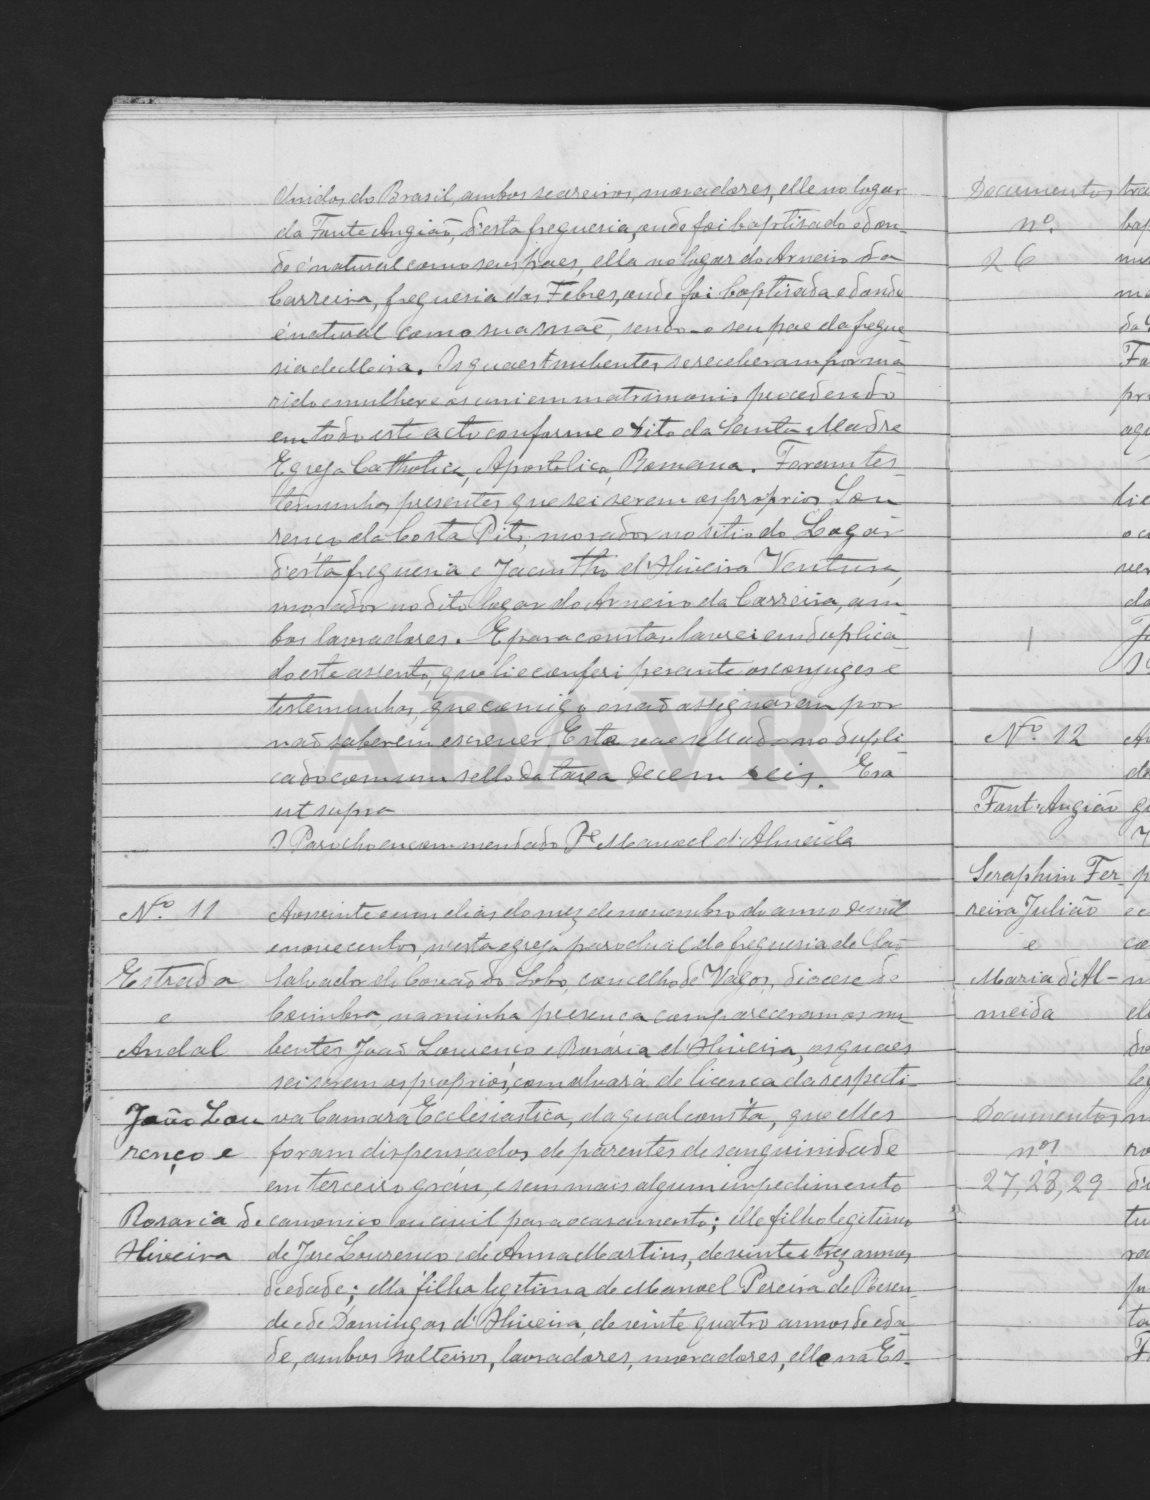 Unidos do Brasil, ambos seareiros, moradores, elle no logar
da Fonte Angião, d'esta freguesia, onde foi baptisado e don-
de é natural como seus paes, ella no logar do Arneiro da
Carreira, freguesia das Febres, onde foi baptisada e donde
é natural como sua mãe, sendo o seu pae da fregue-
sia de Mira. Os quaes nubentes se receberam por ma-
rido e mulher e os uni em matrimonio procedendo
em todo este acto conforme o rito da Santa Madre
Egreja Catholica, Apostolica, Romana. Foram tes-
temunhas presentes que sei serem os proprios Lou-
renço da Costa Pito, morador no sitio do Lagar
d'esta freguesia e Jacintho d'Oliveira Ventura,
morador no dito logar do Arneiro da Carreira, am-
bos lavradores. E para constar lavrei em duplica-
do este assento, que li e conferi perante os conjuges e
testemunhas, que comigo o não assignaram por
não saberem escrever. Este vae sellado no dupli-
cado com um sello da taxa de cem reis. Era
ut supra
O Parocho encommendado Pe Manoel d'Almeida
Nº 11
Estrada
e
Andal
João Lou
renço e
Rosaria de
Oliveira
Aos vinte e um dias do mez de novembro do anno de mil
e novecentos, n'esta egreja parochial da freguesia de São
Salvador de Covão do Lobo, concelho de Vagos, diocese de
Coimbra, na minha presença compareceram os nu-
bentes João Lourenço e Rosaria d'Oliveira, os quaes
sei serem os proprios, com alvará de licença da respecti-
va Camara Ecclesiastica, da qual consta, que elles
foram dispensados de parentes de sanguinidade
em terceiro gráu, e sem mais algum impedimento
canonico ou civil para o casamento; elle filho legitimo
de José Lourenço e de Anna Martins, de vinte e trez annos
de edade; ella filha legitima de Manoel Pereira de Resen-
de e de Domingas d'Oliveira, de vinte quatro annos de eda-
de, ambos solteiros, lavradores, moradores, elle na Es-
Documentos
nº.
26
Nº 12
Font'Angião
Seraphim Fer-
reira Julião
e
Maria d'Al-
meida
Documentos
nos
27, 28, 29